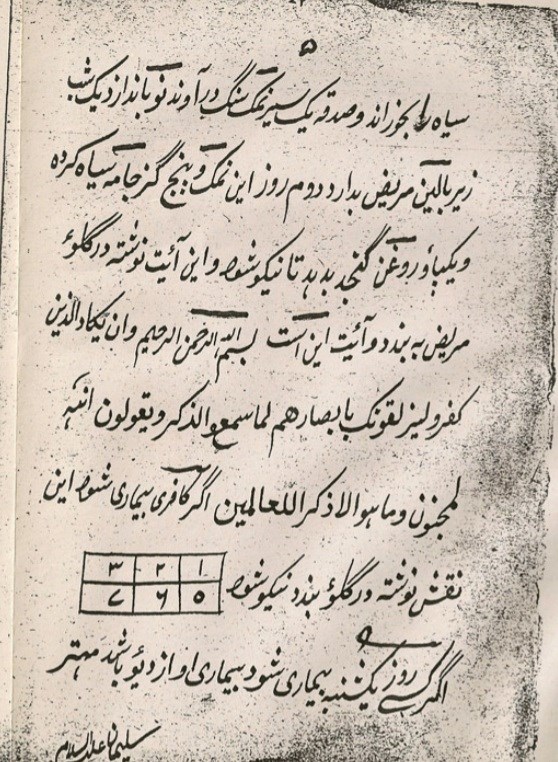 ۵
سیاہ را بخوراند و صدقہ یک سیر نمک سنگ در آوند نو باندازد یک شب
زیر بالین مریض بدارد دوم روز این نمک و پنج گز جامہ سیاہ کردہ
و یکپاؤ روغن کنجد بدہد تا نیکو شود و این آئیت نوشتہ در گلوئ
مریض بہ بندد و آئیت این است بسم اللہ الرحمن الرحیم وان یکاد الذین
کفرو لیزلقونک بابصارھم لما سمع والذکر و یقولون انہ
لمجنون وما ھو الا ذکر اللعالمین اگر کافری بیماری شود این
نقش نوشتہ در گلوئ بندد نیکو شود
۱ ۲ ۳
۵ ۶ ۷
اگر کسے روز یکشنبہ بیماری شود بیماری او از دیؤ باشد مہتر
سلیمان علیہ السلام